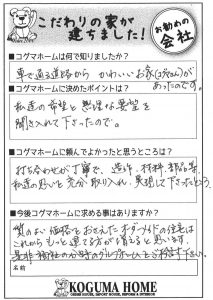 こだわりの家が
建ちました!
お勧めの
会社
■コグマホームは何で知りましたか?
車で通る道路から かわいいお家(は沢さん)が
あったのです。
■コグマホームに決めたポイントは?
私達の希望と無理な要望を
聞き入れて下さったので。
■コグマホームに頼んでよかったと思うところは?
打ち合わせが丁寧で、造作、材料、部品等
私達の思いを充分取り入れ、実現して下さったところ
■今後コグマホームに求める事はありますか?
質のよい価格をおさえたオーダーメイドの住宅は
これからもっと建てる方が増えると思います。
是非
名前
KOGUMA HOME